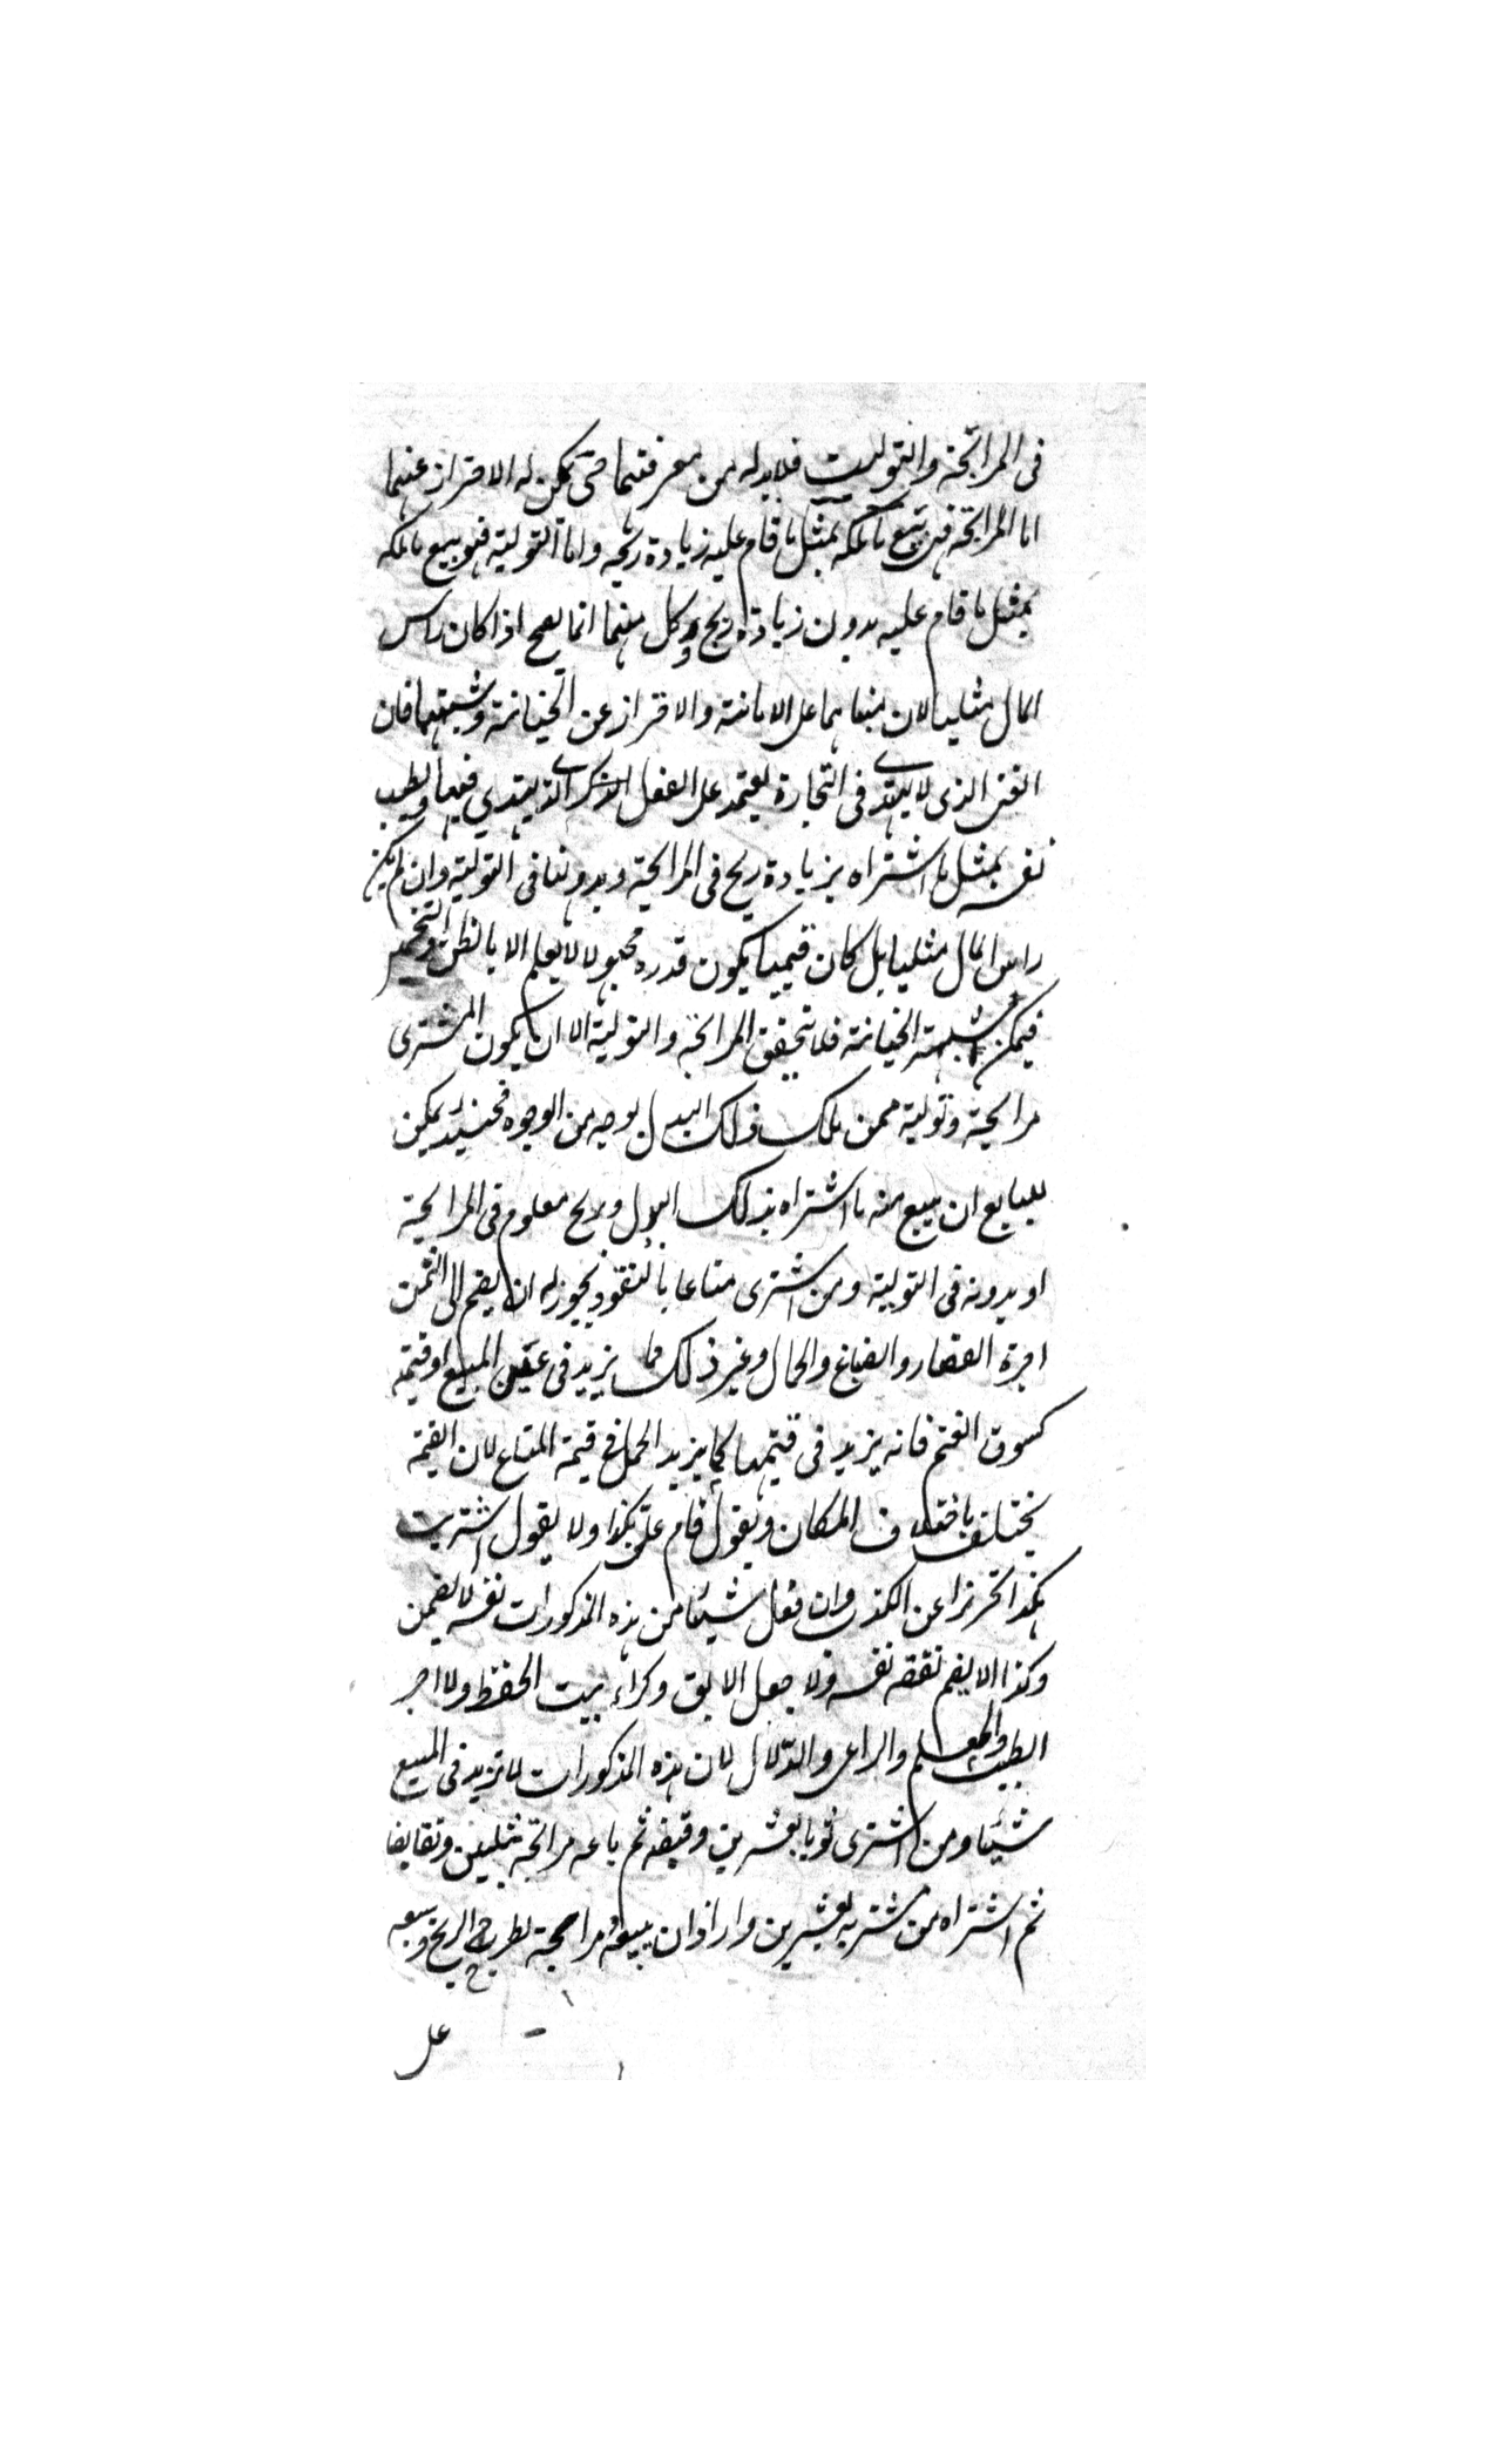 فى المرابحة والتولية فلا بد له من معرفتهما حتى يمكن له الاحتراز عنهما
اما المرابحة فهى بيع ما ملكه بمثل ما قام عليه بزيادة ربحه واما التولية فهو بيع ما ملكه
بمثل ما قام عليه بدون زيادة ربح وكل منهما انما يصح اذا كان راس
المال مثليا لان مبناهما على الامانة والاحتراز عن الخيانة وشبهتها فان
الغبى الذى لا يهتدى فى التجارة يعتمد على الفعل الذكى الذى يهتدي فيها ويطيب
نفسه بمثل ما اشتراه بزيادة ربح فى المرابحة وبدونها فى التولية وان لم يكن
راس المال مثليا بل كان قيميا يكون قدره مجهولا لا يعلم الا بالظن والتخمين
فيمكن شبهة الخيانة فلا تتحقق المرابحة والتولية الا ان يكون المشترى
مرابحة وتولية ممن ملك ذلك البدل بوجه من الوجوه فحينئذ يمكن
للبايع ان يبيع منه ما اشتراه بذلك البدل وربح معلوم فى المرابحة
او بدونه فى التولية ومن اشترى متاعا بالنقود يجوز له ان يضم الى الثمن
اجرة القصار والصباغ والحمال وغير ذلك مما يزيد فى عين المبيع او قيمته
كسوق الغنم فانه يزيد فى قيمتها كما يزيد الحمل فى قيمة المتاع لان القيمة
تختلف باختلاف المكان ويقول قام على بكذا ولا يقول اشتريت
بكذا تحرزا عن الكذب وان فعل شيئا من هذه المذكورات نفسه لا يضمن
وكذا لا يضم نفقة نفسه ولا جعل الابق وكراء بيت الحفظ ولا اجر
الطبيب والمعلم والراعى والدلال لان هذه المذكورات لا تزيد فى المبيع
شيئا ومن اشترى ثوبا بعشرين وقبضه ثم باعه مرابحة بثلثين وتقابضا
ثم اشتراه من مشتريه بعشرين واراد ان يبيعه مرابحة يطرح الربح ويبيعه
على